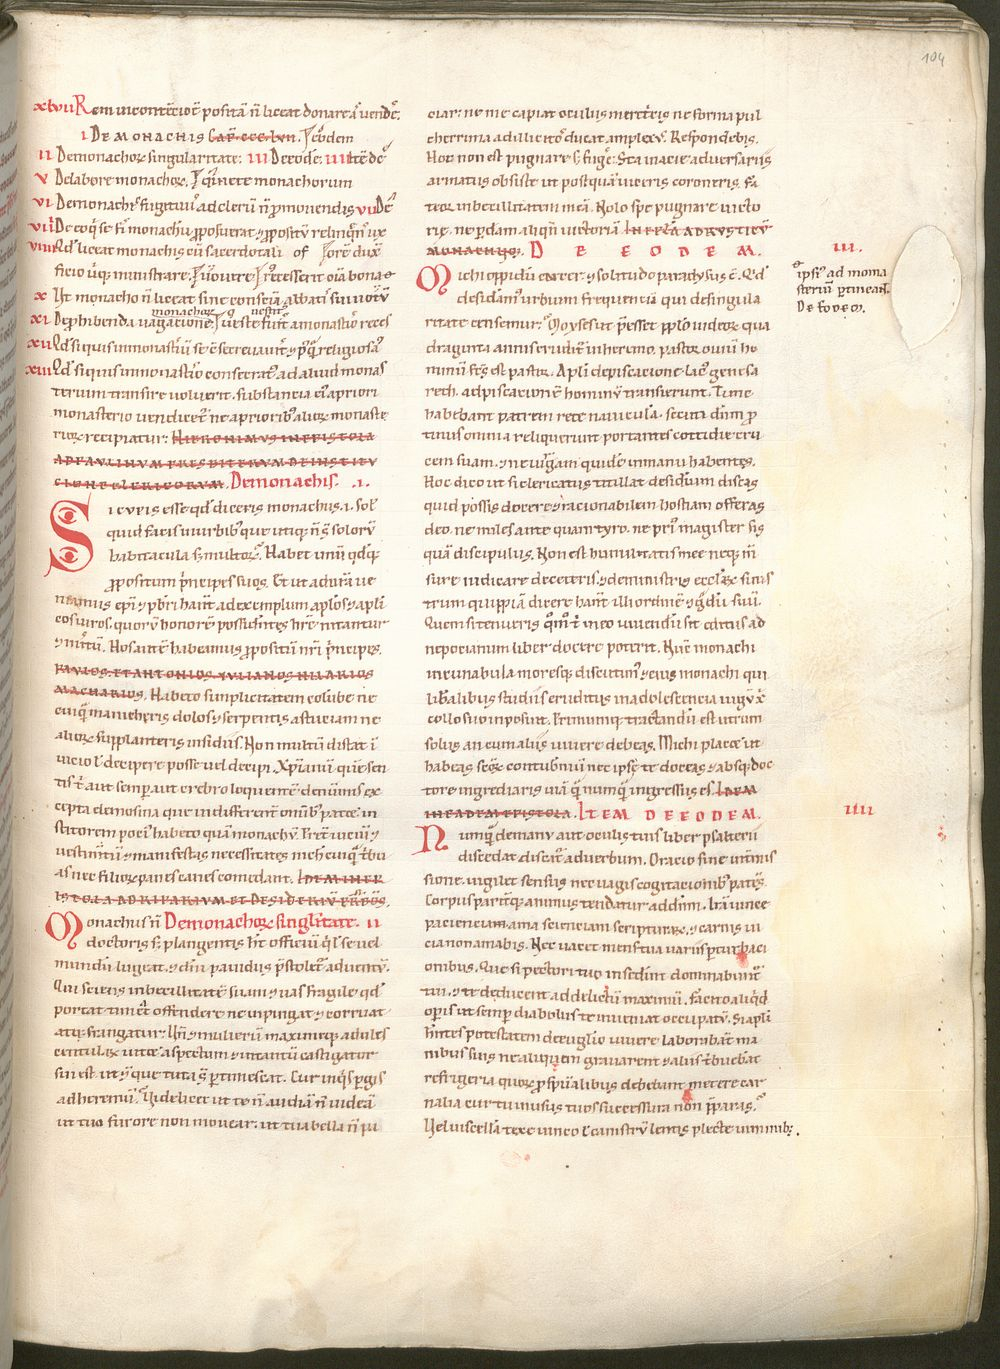 104
xlvii Rem in contẽtioẽ positã ñ liceat donare ł vendẽ.
i DE MONACHIS CAP. CCC.LVII. Jẽodem
ii De monachoꝝ singularitate. iii De eodẽ. iiii Itẽ de
v De labore monachoꝝ. quiete monachorum
vi De monachis fugitiuis ad clerũ ñ promouendis vii De
viii De eo qͥ se fi monachũ proposuerat & propositũ relinqͥt
viiii Qđ liceat monachis cũ sacerdotali of
ficio ubiqꝫ ministrare.
x Vt monacho ñ liceat sine consciã abbatis sui uotũ
monachoꝝ q uestit
xi De phibenda uagatione
xii Qđ si quis in monasteriũ se
xiii Qđ si quis in monasterio consecrat ad aliud monas
terium transire uoluerit. substantia ei apriori
monasterio uendicet ne aprioribꝰ alioꝝ monaste
rioꝝ recipiatur. HIERONIMVS IN EPISTOLA
AD PAVLINVM PRESBITERVM DE INSTITV
CIONE CLERICORVM. De monachis. .i.
Si cupis esse qđ diceris monachus .i. solꝰ
quid facis in urbibꝰ que utiqꝫ ñ sunt solorũ
habitacula sꝫ multoꝝ. Habet unũ qđqꝫ
propositum principes suos. Et ut ad nrã ue
niamus epĩ & pbri habñt ad exemplum aplos & apli
cos uiros. quorũ honorẽ possidentes hrẽ nitantur
& meritũ. Nos autẽ habeamus propositũ nri principes.
PAVLOS. ET ANTONIOS. IVLIANOS HILARIOS
MACHARIOS. Habeto simplicitatem columbe ne
cuiqͣ machineris dolos & serpentis astuciam ne
alioꝝ supplanteris insidiis. Non multũ distat ĩ
uicio ł decipere posse vel decipi. Xp̃ianũ quẽ sen
tis t aut semp aut crebro loquentẽ de nũmis ex
cepta elemosina que indifferentẽ omnibꝰ patet in
stitorem poci habeto quã monachũ. Pret uictũ &
uestimtũ & manifestas necessitates nichil cuiqͣ tribu
as nec filioꝝ panes canes comedant. IDEM IN EPIS
TOLA AD RIPARIVM ET DESIDERIVM PRBOS.
Monachus ñ De monachoꝝ singlitate. ii
doctoris sꝫ plangentis ht officiũ qͥ se uel
mundũ lugeat. & dñi pauidus prestolet aduentũ.
Qui sciens inbecillitatẽ suam & uas fragile qđ
portat timet offendere ne inpingat & corruat
atqꝫ frangatur. Vñ & mulierũ maximeqꝫ adules
centulaꝝ uitat aspectum & intantũ castigator
sui est. ut & que tuta sunt pertimescat. Cur inqͥs pergis
ad heremũ. Videlicet ut te ñ audiã ñ uideã
ut tuo furore non mouear. ut tua bella ñ pa
ciar. ne me capiat oculus meretricis ne forma pul
cherrima ad illicitos ducat amplexꝰ. Respondebis.
Hoc non est pugnare sꝫ fugere. Sta in acie aduersariis
armatus obsiste ut postquã uiceris coroneris. Fa
teor inbecillitatem meã. Nolo spe pugnare uicto
rie. ne perdam aliqñ uictoriã. IN EPLA AD RVSTICVM
MONACHVM. DE EODEM. iii.
Michi oppidũ carcer & solitudo paradysus ẽ. Qđ
desideramꝰ urbium frequenciã qui de singula
ritate censemur. Moyses ut preesset pplo iudeoꝝ qua
draginta annis eruditur in heremo. pastor ouiũ ho
minũ factus est pastor. Apli de piscacione lacꝰ genesa
reth. ad piscacionẽ hominũ transierunt. Tunc
habebant patrem rete nauicula. secuti dnm pro
tinus omnia reliquerunt portantes cottidie cru
cem suam. & ne uirgam quidẽ in manu habentes.
Hoc dico ut si clericatus titillat desideriũ discas
quid possis docere & racionabilem hostiam offeras
deo. ne miles ante quam tyro. ne priꝰ magister sis
quã discipulus. Non est humilitatis mee neqꝫ mẽ
sure iudicare de ceteris. & de ministris ecclesiaꝝ sinis
trum quippiã dicere. habeant illi ordinẽ & gradũ suũ.
Quem si tenueris quomodo t in eo uiuendũ sit editus ad
nepocianum liber docere poterit. Nunc monachi
incunabula moresqꝫ discutimꝰ & eius monachi qui
liberalibus studiis eruditus in adolescencia iugũ xp̃i
collo suo inposuit. Primumqꝫ tractandũ est utrum
solus an cum aliis uiuere debeas. Michi placet ut
habeas sctõꝝ contubniũ nec ipse te doceas & absqꝫ doc
tore ingrediaris uiã qͣ numqͣ ingressus es. IDEM
IN EADEM EPISTOLA. ITEM DE EODEM. iiii
Numqͣ de manu aut oculis tuis liber psalterii
discedat. discatur ad uerbum. Oracio sine intermis
sione. uigilet sensus nec uagis cogitacionibꝰ patens.
Corpus pariterqꝫ animus tendatur ad dnm. Irã uince
paciencia. ama scienciam scripturaꝝ. & carnis ui
cia non amabis. Nec uacet mens tua uariis perturbaci
onibus. Que si pectori tuo insederint dominabuntur
tui. & te deducent ad delictũ maximũ. Facito aliqͥd
operis ut semp diabolus te inueniat occupatũ. Si apli
habentes potestatem de euglio uiuere laborabant ma
nibus suis ne aliquem grauarent & aliis tribuebat
refrigeria quoꝝ pro spualibus debebant metere car
nalia cur tu in usus tuos successura non preparas.
Vel uiscellã texe iunco ł canistrũ lentis plecte uiminibꝫ.
ipsꝰ ad mona
steriũ ptineat.
De eodem.